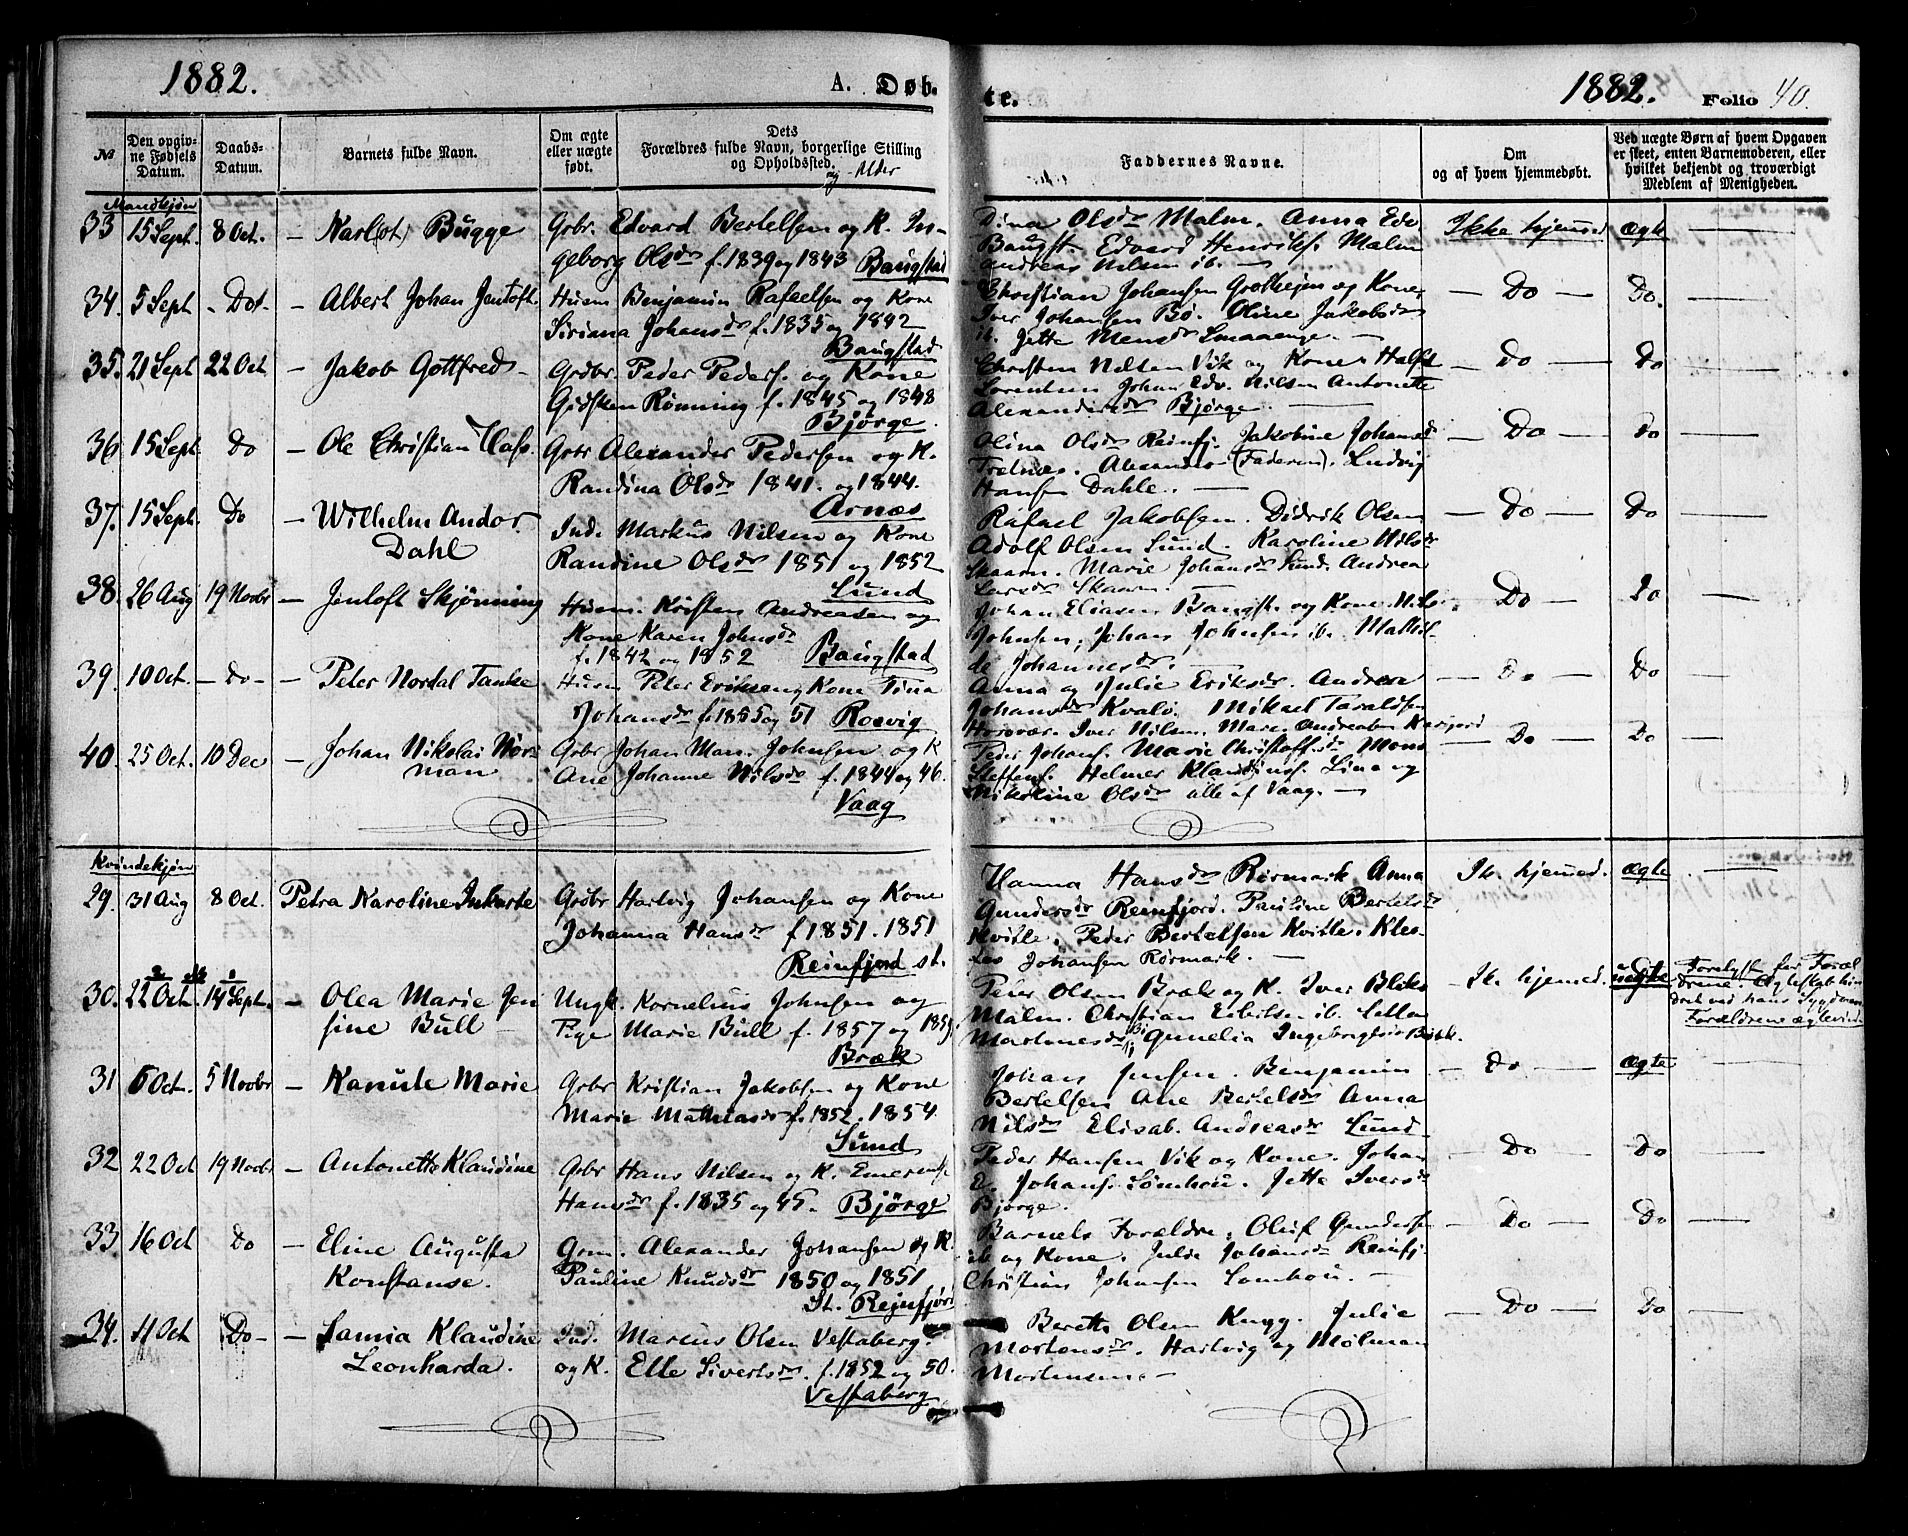 1882.
A. Døb-
te.
1882.
Folio 40.
№
Den opgivne Fødsels Datum.
Daabs-Datum.
Barnets fulde Navn.
Om ægte eller uægte født.
Dets Forældres fulde Navn, borgerlige Stilling og Opholdssted.
og Alder
Faddernes Navne.
Om og af hvem hjemmedøbt.
Ved uægte Børn af hvem Opgaven er skeet, enten Barnemoderen, eller hvilket bekjendt og troværdigt Medlem af Menigheden.
Mandkjøn
33 15 Sept. 8 Oct. – Karl(ot) Bugge
Grbr. Edvard Bertelsen og K. In-
geborg Olsdr f. 1839 og 1843 Bangstad
Dina Olsdr Malm. Anna Edv.
Bangst. Edvard Henriks. Malm
Andreas Nilsen ib. –
Ikke hjemmed ægte
34. 5 Sept – Do – – Albert Johan Jentoft.
Husm Benjamin Rafaelsen og Kone
Siriana Johansdr f. 1835 og 1842
Bangstad
Christian Johansen Grothejm og Kone
Iver Johansen Bø. Oline Jakobsdr
ib. Jette Monsdr Smaaenge. –
– Do – Do.
35. 21 Sept 22 Oct – Jakob Gottfred –
Grdbr. Peder Peders. og Kone
Gidsken Rønning f. 1845 og 1848
Bjørge.
Christen Nilsen Vik og Kone. Halfd
Lorentsen Johan Edv. Nilsen Antonette
Alexandersdr Bjørge. –
– Do – Do
36 15 Sept Do – Ole Christian Hafs.
Grbr Alexander Pedersen og K.
Randina Olsdr 1841. og 1844.
Arnæs
Olina Olsdr Reinfj. Jakobine Johansdr
Trælnæs. Alexander (Faderen). Ludvig
Hansen Dahle. –
– Do – Do
37. 15 Sept. Do – Wilhelm Andor
Dahl
Ind. Markus Nilsen og Kone
Randine Olsdr 1851 og 1852
Lund
Rafael Jakobsen. Didrik Olsen
Adolf Olsen Lund. Karoline Nilsdr
Skaarn. Marie Johansdr Lund. Andrea
Larsdr Skaarn. –
– Do – Do
38. 26 Aug 19 Novbr – Jentoft Skjønning
Husm. Kristen Andreasen og
Kone Karen Johnsdr
f. 1842 og 1852 Bangstad
Johan Eliasen Bangst. og Kone. Nils
Johnsen, Johan Johnsen ib. Mathil-
de Johannesdr. –
Do – Do
39. 10 Oct. – Do – – Peter Nordal Tanke
Husm Peter Eriksen og Kone Tina
Johansdr f. 1855 og 51 Rosvig
Anna og Julie Eriksdr. Andrea
Johansdr Kvalø. Mikael Taraldsen
Horsvær. Iver Nilsen. Marie Andreasen
– Do – Do
40. 25 Oct. 10 Dec – Johan Nikolai Nor-
man
Grbr Johan Man. Johnsen og K
Ane Johanne Nilsdr f. 1844 og 46.
Vaag
Peder Johans. Marie Christoffdr Mons
Steffens. Helmer Klausins. Lina og
Nikoline Olsdr alle af Vaag. –
– Do – Do
Kvindekjøn
29. 31 Aug 8 Oct. Petra Karoline
Grdbr Hartvig Johansen og Kone
Johanna Hansdr f 1851. 1851
Reinfjord st.
Hanna Hansdr Rørmark Anna
Gundersdr Reinfjord. Pauline Bertelsdr
Kvitle. Peder Bertelsen Kvitle. Kle-
Johansen Rørmark. –
Ik. hjemmed. ægte
30. 22 Oct. 14 Sept. – Olea Marie Jen
sine Bull –
Ungk. Kornelius Johnsen og
Pige Marie Bull f. 1857 og 1859.
Bræk
Peter Olsen Bræk og K. Iver
Malm. Christian ib.
Martinesdr Gunelia
– Ik. hjemmed. uægte
Forældrene
31 6 Oct. 5 Novbr – Kanute Marie
Grbr Kristian Jakobsen og Kone
Marie Mathiasdr f. 1852. 1854.
Lund
Johan Jensen. Benjamin
Bertelsen Ane Bertelsdr Anna
Nilsdr Elisab. Andreasdr Lund
– Do – ægte
32 22 Oct 19 Novbr – Antonette Klaudine
Grbr Hans Nilsen og K. Emerense
Hansdr f. 1835 og 45. Bjørge
Peder Hansen Vik og Kone. Johan
E. Johans. Lomhou. Jette Iversdr
Bjørge.
– Do – Do
33 16 Oct Do – Eline Augusta
Konstanse.
Grm. Alexander Johansen og K.
Pauline Knudsdr 1850 og 1851
St. Reinfjord
Barnets Forældre. Oluf Gunders
ib og Kone. Julie Johansdr Reinfj
Christian Johansen Lomhou. –
– Do – Do
34. 11 Oct Do – – Lamia Klaudine
Leonharda.
Ind. Marcus Olsen Vestaberg
og K. Elle Sivertsdr. f. 1852 og 50.
Vestaberg
Berett Olsen Knyg. Julie
Mortensdr. Hartvig og
Mortensen. –
– Do – Do